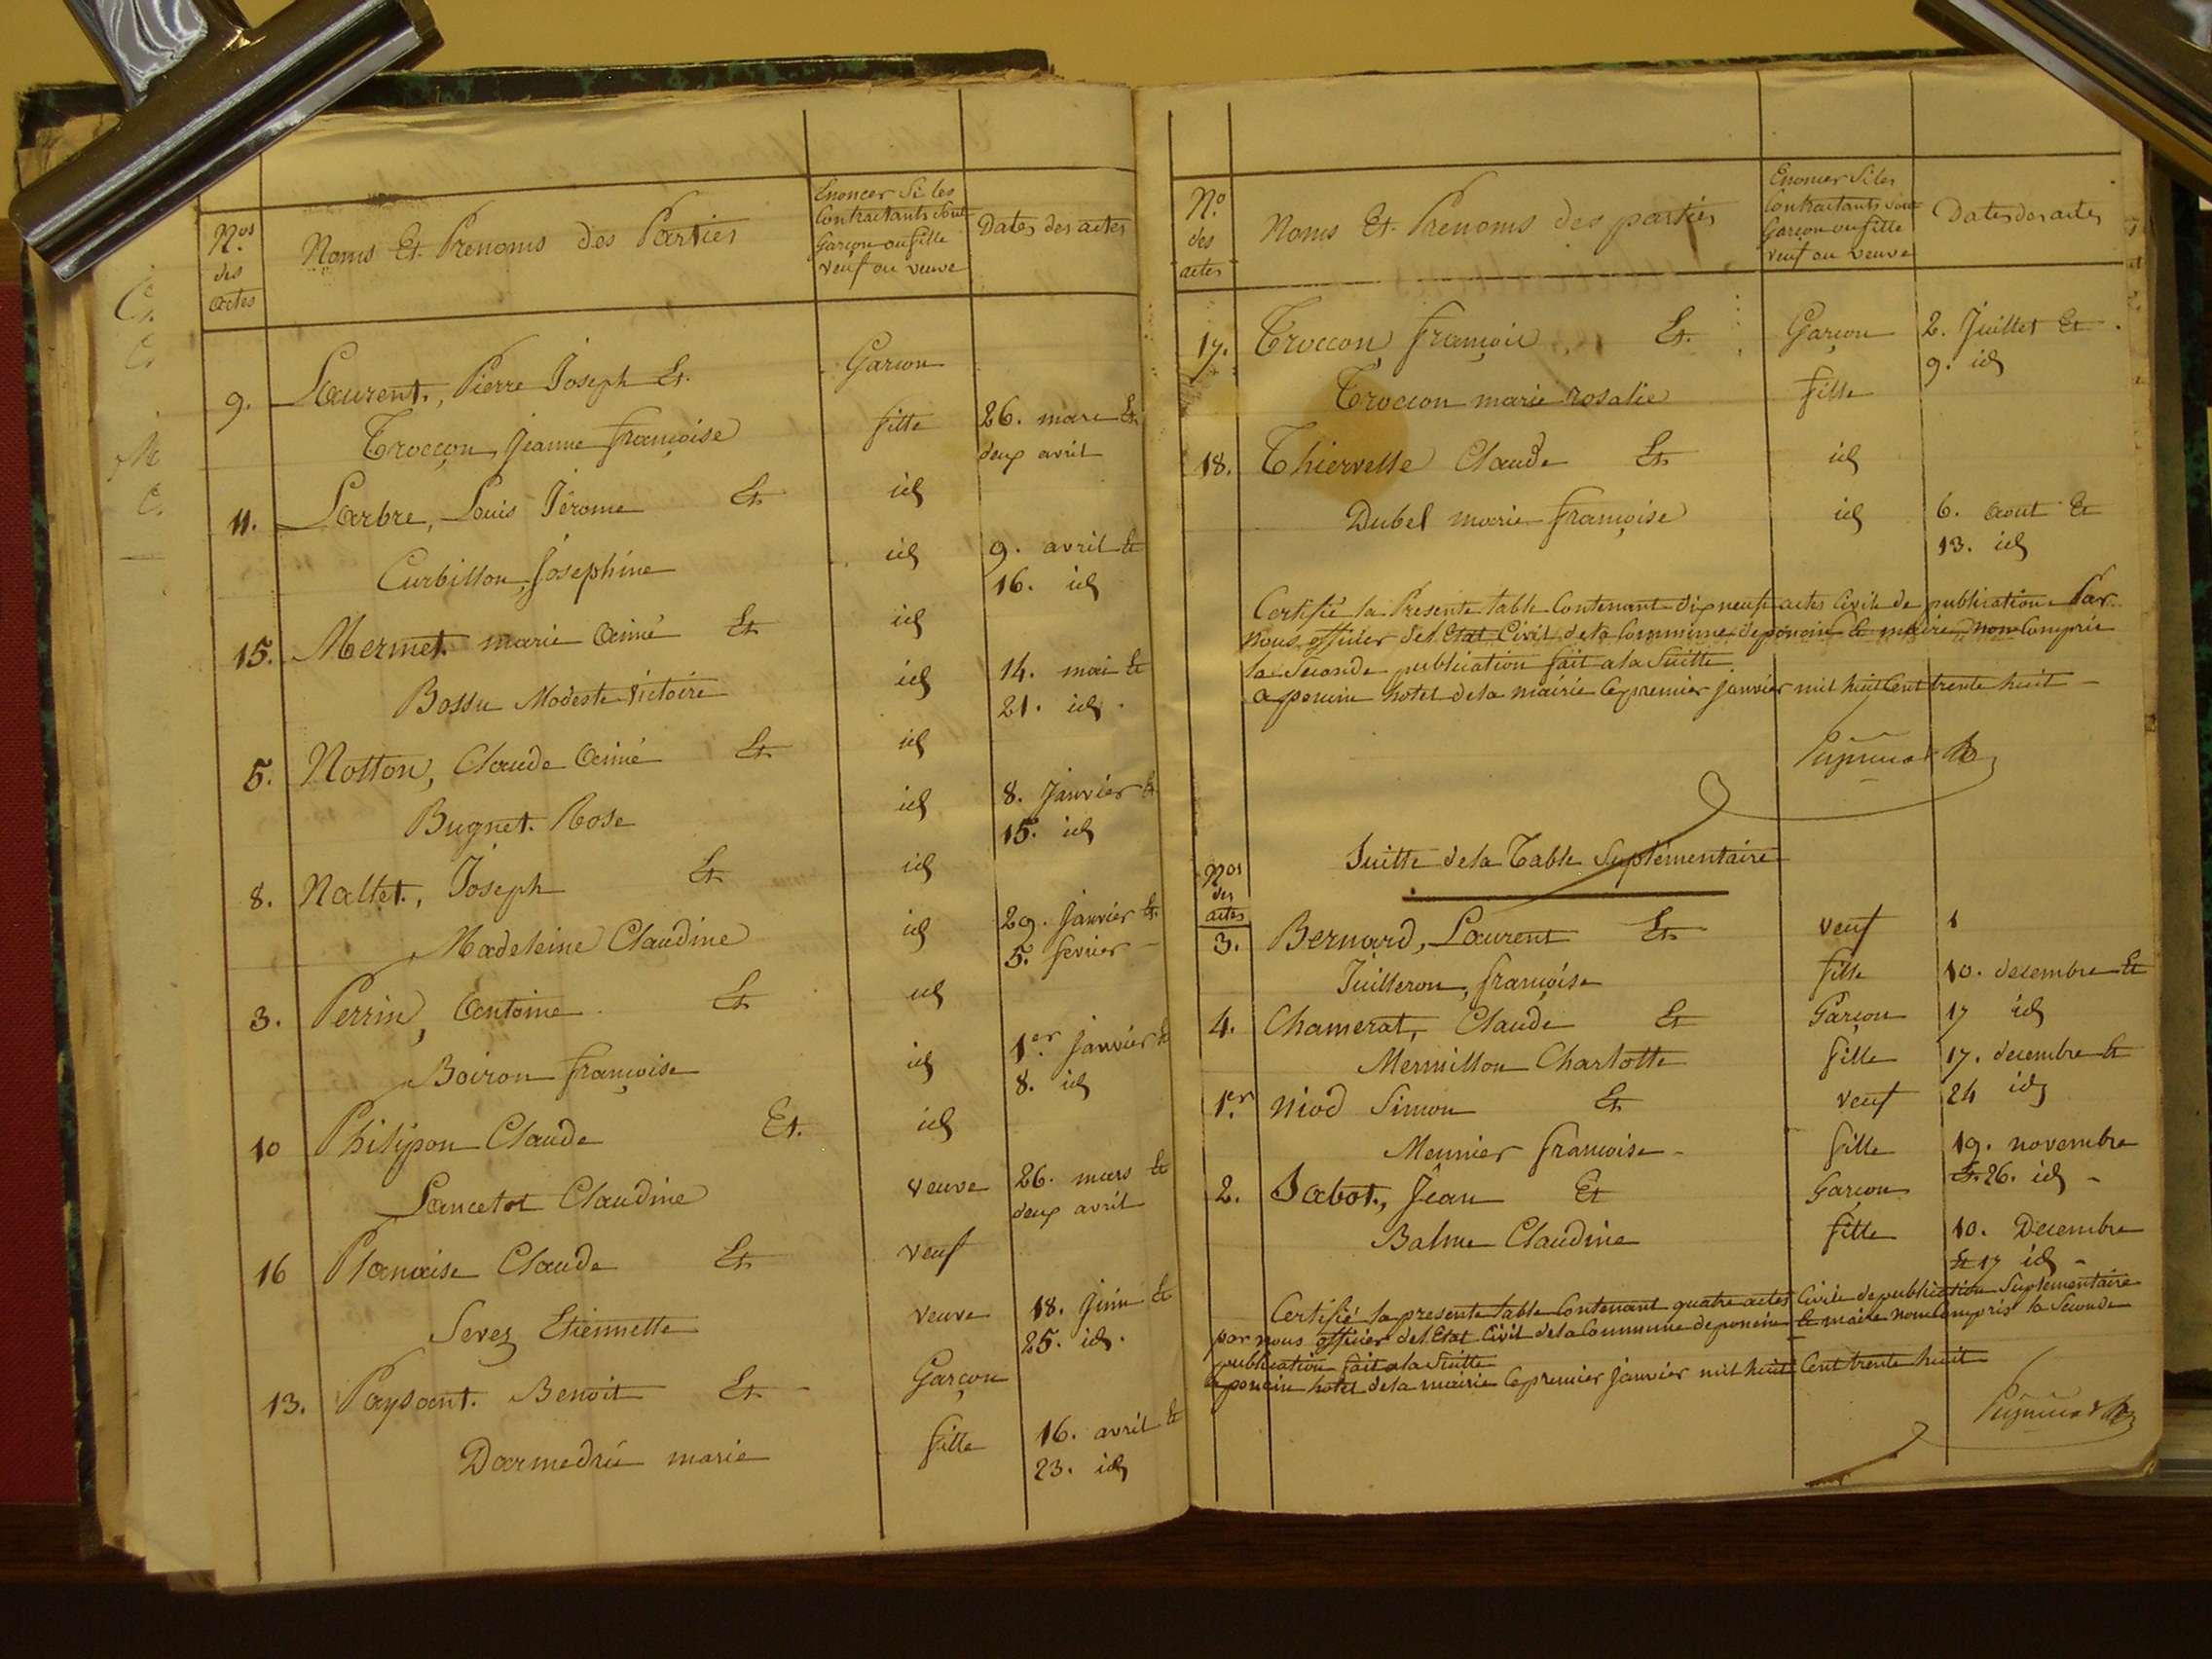 Nos des actes
Noms Et Prenoms des Parties
Enoncer Si les
Contractants sont
Garçon ou fille
veuf ou veuve
Dates des actes
Garcon
9. Laurent, Pierre Joseph Et.
Troccon, Jeanne françoise fille 26. mars Et
deux avril
11. Larbre, Louis Jérome Et id
Curbillon, Josephine id 9. avril Et
16. id
15. Mermet marie aimé Et id
Bossu Modeste Victoire id 14. mai Et
21. id.
5. Notton, Claude aimé Et id
Bugnet Rose id 8. Janvier Et
15. id
8. Nallet, Joseph Et id
Madeleine Claudine id 29. Janvier Et.
5. fevrier
3. Perrin, antoine Et id
Boiron françoise id 1er janvier Et
8. id
10 Philipon Claude Et. id
Lancelot Claudine veuve 26. mars Et
deux avril
16 Planaise Claude Et veuf
Sevez Etiennette veuve 18. juin Et
25. id.
13. Paysant. Benoit Et Garçon
Darmedrú marie fille 16. avril Et
23. id
No. des actes
Noms Et. Prenoms des parties
Enoncer Si les
Contractants sont
Garçon ou fille
veuf ou veuve
Dates des actes
17. Troccon, françois Et. Garçon 2. Juillet Et
9. id
Troccon marie rosalie fille
18. Thiervelle Claude Et id
Dubel marie françoise id 6. aout Et
13. id
Certifié la Presente table Contenant dix neuf actes Civils de publication Par
nous officier de l'Etat Civil de la Commune de poncin le maire, non Compris
la Seconde publication fait a la Suitte
a poncin hotel de la mairie le premier janvier mil huit Cent trente huit
Suitte de la Table Suplémentaire
Nos
des
actes
3. Bernard, Laurent Et veuf
Juilleron, françoise fille 10. decembre Et
4. Chamerat, Claude Et Garçon 17 id
Mermillon Charlotte fille 17. decembre Et
1er. Niod Simon Et veuf 24 id
Meunier françoise fille 19. novembre
2. Sabot, Jean Et Garçon Et. 26. id
Balme Claudine fille 10. Decembre
Et 17 id
Certifié la presente table Contenant quatre actes Civils de publication Suplementaire
par nous officier de l'Etat Civil de la Commune de poncin le maire non Compris la Seconde
publication fait a la Suitte
a poncin hotel de la mairie le premier janvier mil huit Cent trente huit